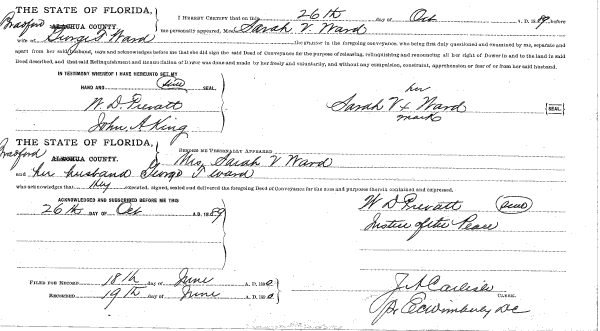 THE STATE OF FLORIDA,
Bradford ALACHUA COUNTY.
I HEREBY CERTIFY that on this 26th day of Oct A. D. 1889, before
me personally appeared, Mrs. Sarah V. Ward
wife of George T. Ward the grantor in the foregoing conveyance, who being first duly questioned and examined by me, separate and
apart from her said husband, says and acknowledges before me that she did sign the said Deed of Conveyance for the purpose of releasing, relinquishing and renouncing all her right of Dower in and to the land in said
Deed described, and that said Relinquishment and Renunciation of Dower was done and made by her freely and voluntarily, and without any compulsion, constraint, apprehension or fear of or from her said husband.
IN TESTIMONY WHEREOF I HAVE HEREUNTO SET MY
HAND AND SEAL.
W. D. Prevatt
John A King
her
Sarah V x Ward [SEAL.]
mark
THE STATE OF FLORIDA,
Bradford ALACHUA COUNTY.
BEFORE ME PERSONALLY APPEARED
Mrs. Sarah V Ward
and her husband George T Ward
who acknowledges that they executed, signed, sealed and delivered the foregoing Deed of Conveyance for the uses and purposes therein contained and expressed.
ACKNOWLEDGED AND SUBSCRIBED BEFORE ME THIS
26th DAY OF Oct A.D. 1889
W D Prevatt
Justice of the Peace
FILED FOR RECORD 18th day of June A. D. 1890
RECORDED 19th day of June A. D. 1890
J. A Carlisle
CLERK.
Pr E C Wimberly DC